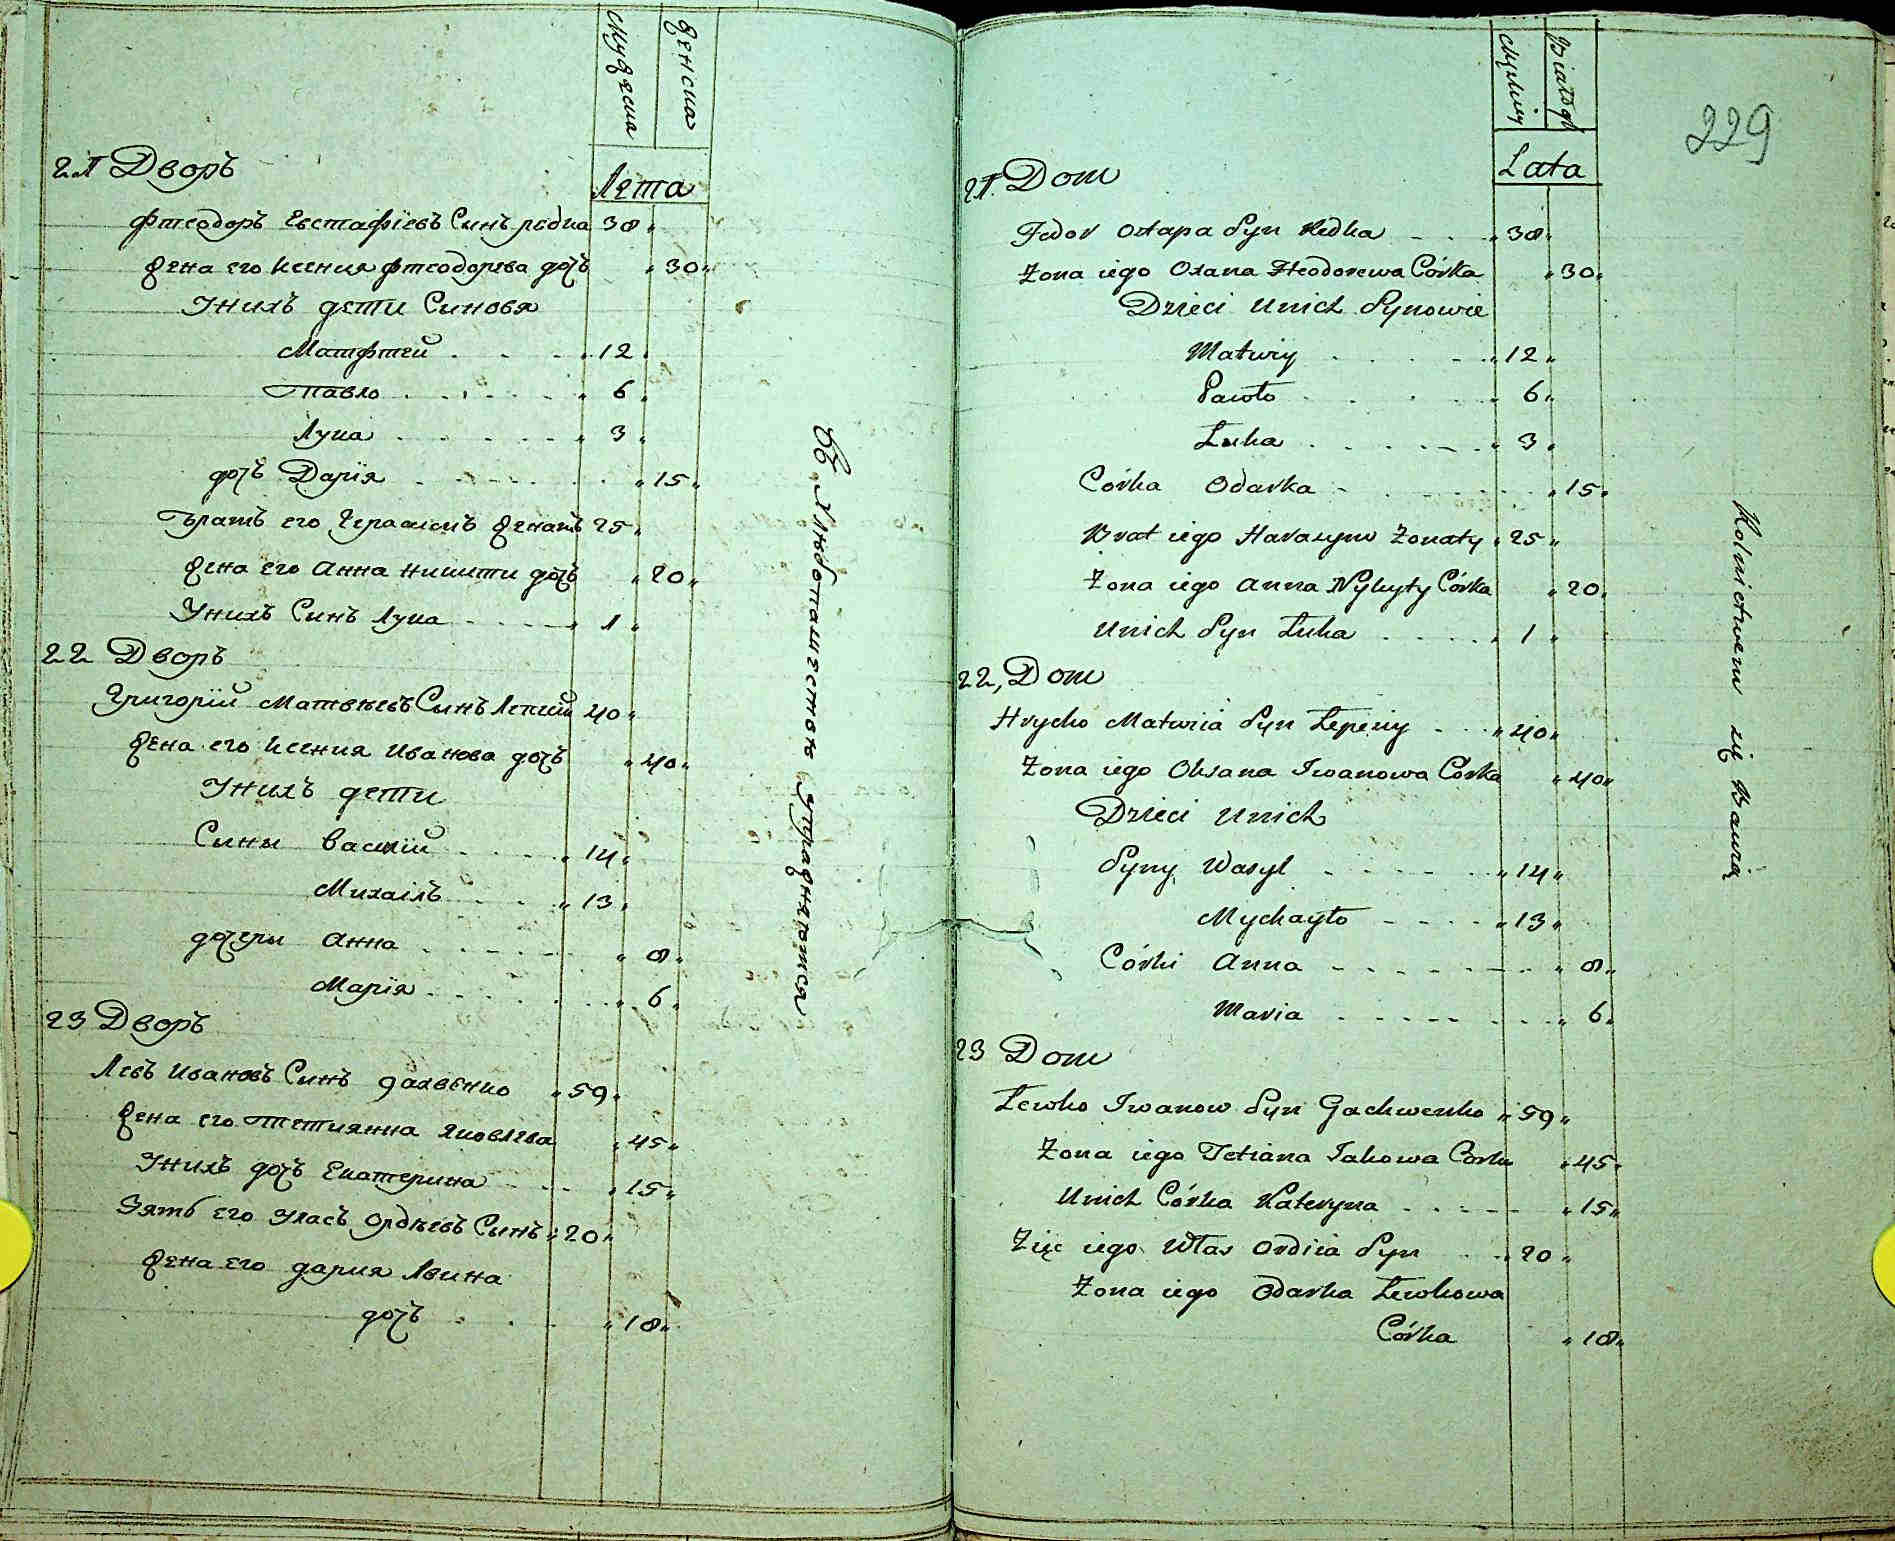 мужеска
женска
Лета
21 Дворъ
Фтеодоръ Евстафіевъ Синъ редка 38
жена его Ксения фтеодорева дочъ 30
Унихъ дети Синовя
Матфтей 12
Павло 6
Лука 3
дочъ Дарія 15
Братъ его Герасимъ женатъ 25
жена его Анна Никити дочъ 20
Унихъ Синъ Лука 1
22 Дворъ
Григорій Матвѣевъ Сынъ Лепкій 40
жена его Ксения Иванова дочъ 40
Унихъ дети
Сыны Василій 14
Михаілъ 13
дочеры Анна 8
Марія 6
23 Дворъ
Левъ Ивановъ Синъ 59
жена его Тетиянна Яковлева 45
Унихъ дочъ Екатерина 15
Зять его Уласъ Ордѣевъ Сынъ 20
жена его дария Лвина
дочъ 18
Въ хлѣбопашествѣ упражняются
229
męzkiey
Białogł
Lata
21. Dom
Fedor Ostapa Syn Redka 38
Żona iego Oxana Fteodorewa Córka 30
Dzieci Unich Synowie
Matwiy 12
Pawło 6
Łuka 3
Córka Odarka 15
Brat iego Harasym Żonaty 25
Żona iego Anna Nykyty Córka 20
Unich Syn Łuka 1
22, Dom
Hrycko Matwiia Syn Łepkiy 40
Żona iego Oksana Iwanowa Córka 40
Dzieci Unich
Syny Wasyl 14
Mychayło 13
Córki Anna 8
Maria 6
23 Dom
Lewko Iwanow Syn Gachwenko 59
Żona iego Tetiana Iakowa Corka 45
Unich Córka Kateryna 15
Zięc iego Włas Ordiia Syn 20
Żona iego Odarka Lewkowa
Córka 18
Rolnictwem się Bawią